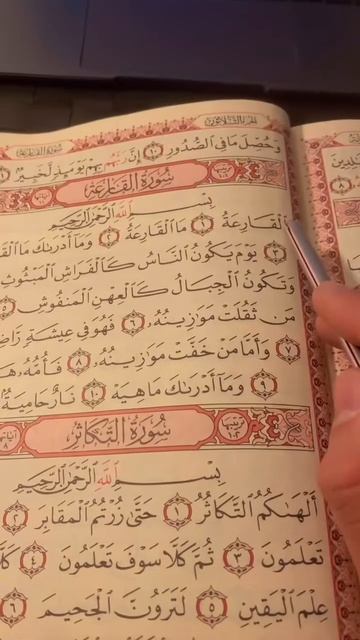 الجزء الثلاثون سورة القارعة
وَحُصِّلَ مَا فِي ٱلصُّدُورِ ١٠ إِنَّ رَبَّهُم بِهِمْ يَوْمَئِذٍ لَّخَبِيرٌۢ
سُورَةُ ٱلْقَارِعَةِ
بِسْمِ ٱللَّهِ ٱلرَّحْمَٰنِ ٱلرَّحِيمِ
ٱلْقَارِعَةُ ١ مَا ٱلْقَارِعَةُ ٢ وَمَآ أَدْرَىٰكَ مَا
٣ يَوْمَ يَكُونُ ٱلنَّاسُ كَٱلْفَرَاشِ ٱلْمَبْثُوثِ
وَتَكُونُ ٱلْجِبَالُ كَٱلْعِهْنِ ٱلْمَنفُوشِ
مَن ثَقُلَتْ مَوَٰزِينُهُۥ ٦ فَهُوَ فِي عِيشَةٍ
٧ وَأَمَّا مَنْ خَفَّتْ مَوَٰزِينُهُۥ ٨ فَأُمُّهُۥ
٩ وَمَآ أَدْرَىٰكَ مَا هِيَهْ ١٠ نَارٌ حَامِيَةٌۢ
سُورَةُ ٱلتَّكَاثُرِ ترتيبها ١٠٢ آياتها ٨
بِسْمِ ٱللَّهِ ٱلرَّحْمَٰنِ ٱلرَّحِيمِ
أَلْهَىٰكُمُ ٱلتَّكَاثُرُ ١ حَتَّىٰ زُرْتُمُ ٱلْمَقَابِرَ ٢
تَعْلَمُونَ ٣ ثُمَّ كَلَّا سَوْفَ تَعْلَمُونَ ٤
عِلْمَ ٱلْيَقِينِ ٥ لَتَرَوُنَّ ٱلْجَحِيمَ ٦